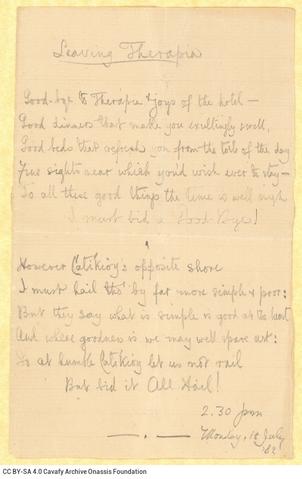 Leaving Therapia
Good-bye to Therapia & joys of the hotel —
Good dinners that make you exultingly swell,
Good beds that refresh you from the toils of the day
Fine sights near which you'd wish ever to stay —
To all these good things the time is well nigh
I must bid a Good Bye!
However Catikioy's opposite shore
I must hail tho' by far more simple & poor:
But they say what is simple is good at the heart
And where goodness is we may well spare art:
So at humble Catikioy let us not rail
But bid it All Hail!
2.30 pm
Monday, July
82
CC BY-SA 4.0 Cavafy Archive Onassis Foundation